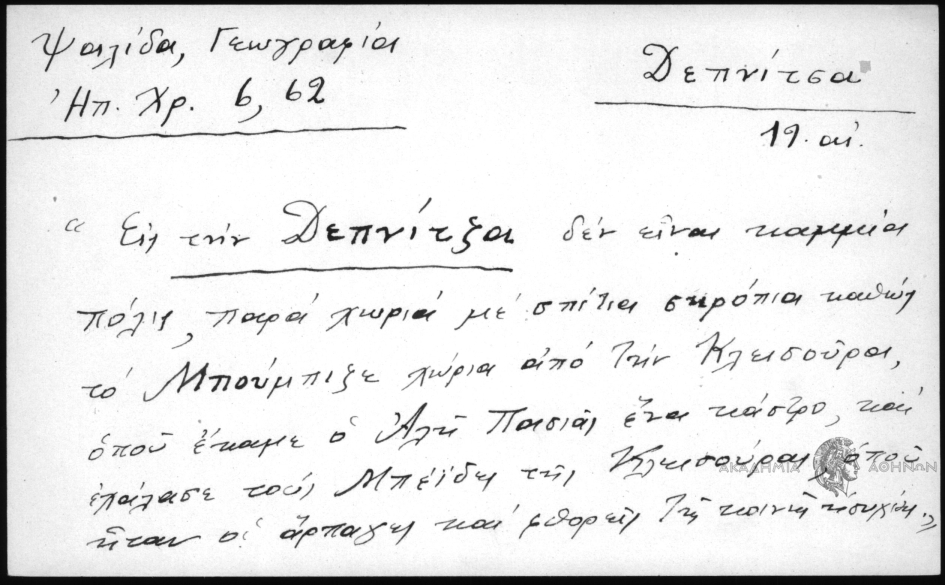 Ψαλίδα, Γεωγραφία
Ἠπ. Χρ. 6, 62
Δεπνίτσα
19. αἰ.
“ Εἰς τὴν Δεπνίτζα δέν εἶναι καμμία
πόλις, παρά χωριά μέ σπίτια σκρόπια καθώς
τό Μπούμπιξε χώρια ἀπό τήν Κλεισούρα,
ὁποῦ ἔκαμε ὁ Ἀλῆ Πασιᾶς ἕνα κάστρο, καί
ἐχάλασε τούς Μπέϊδες τῆς Κλεισούρας, ὁποῦ
ἦταν οἱ ἅρπαγες καί φθορεῖς τῆς κοινῆς ἡσυχίας.„
ΑΚΑΔΗΜΙΑ ΑΘΗΝΩΝ